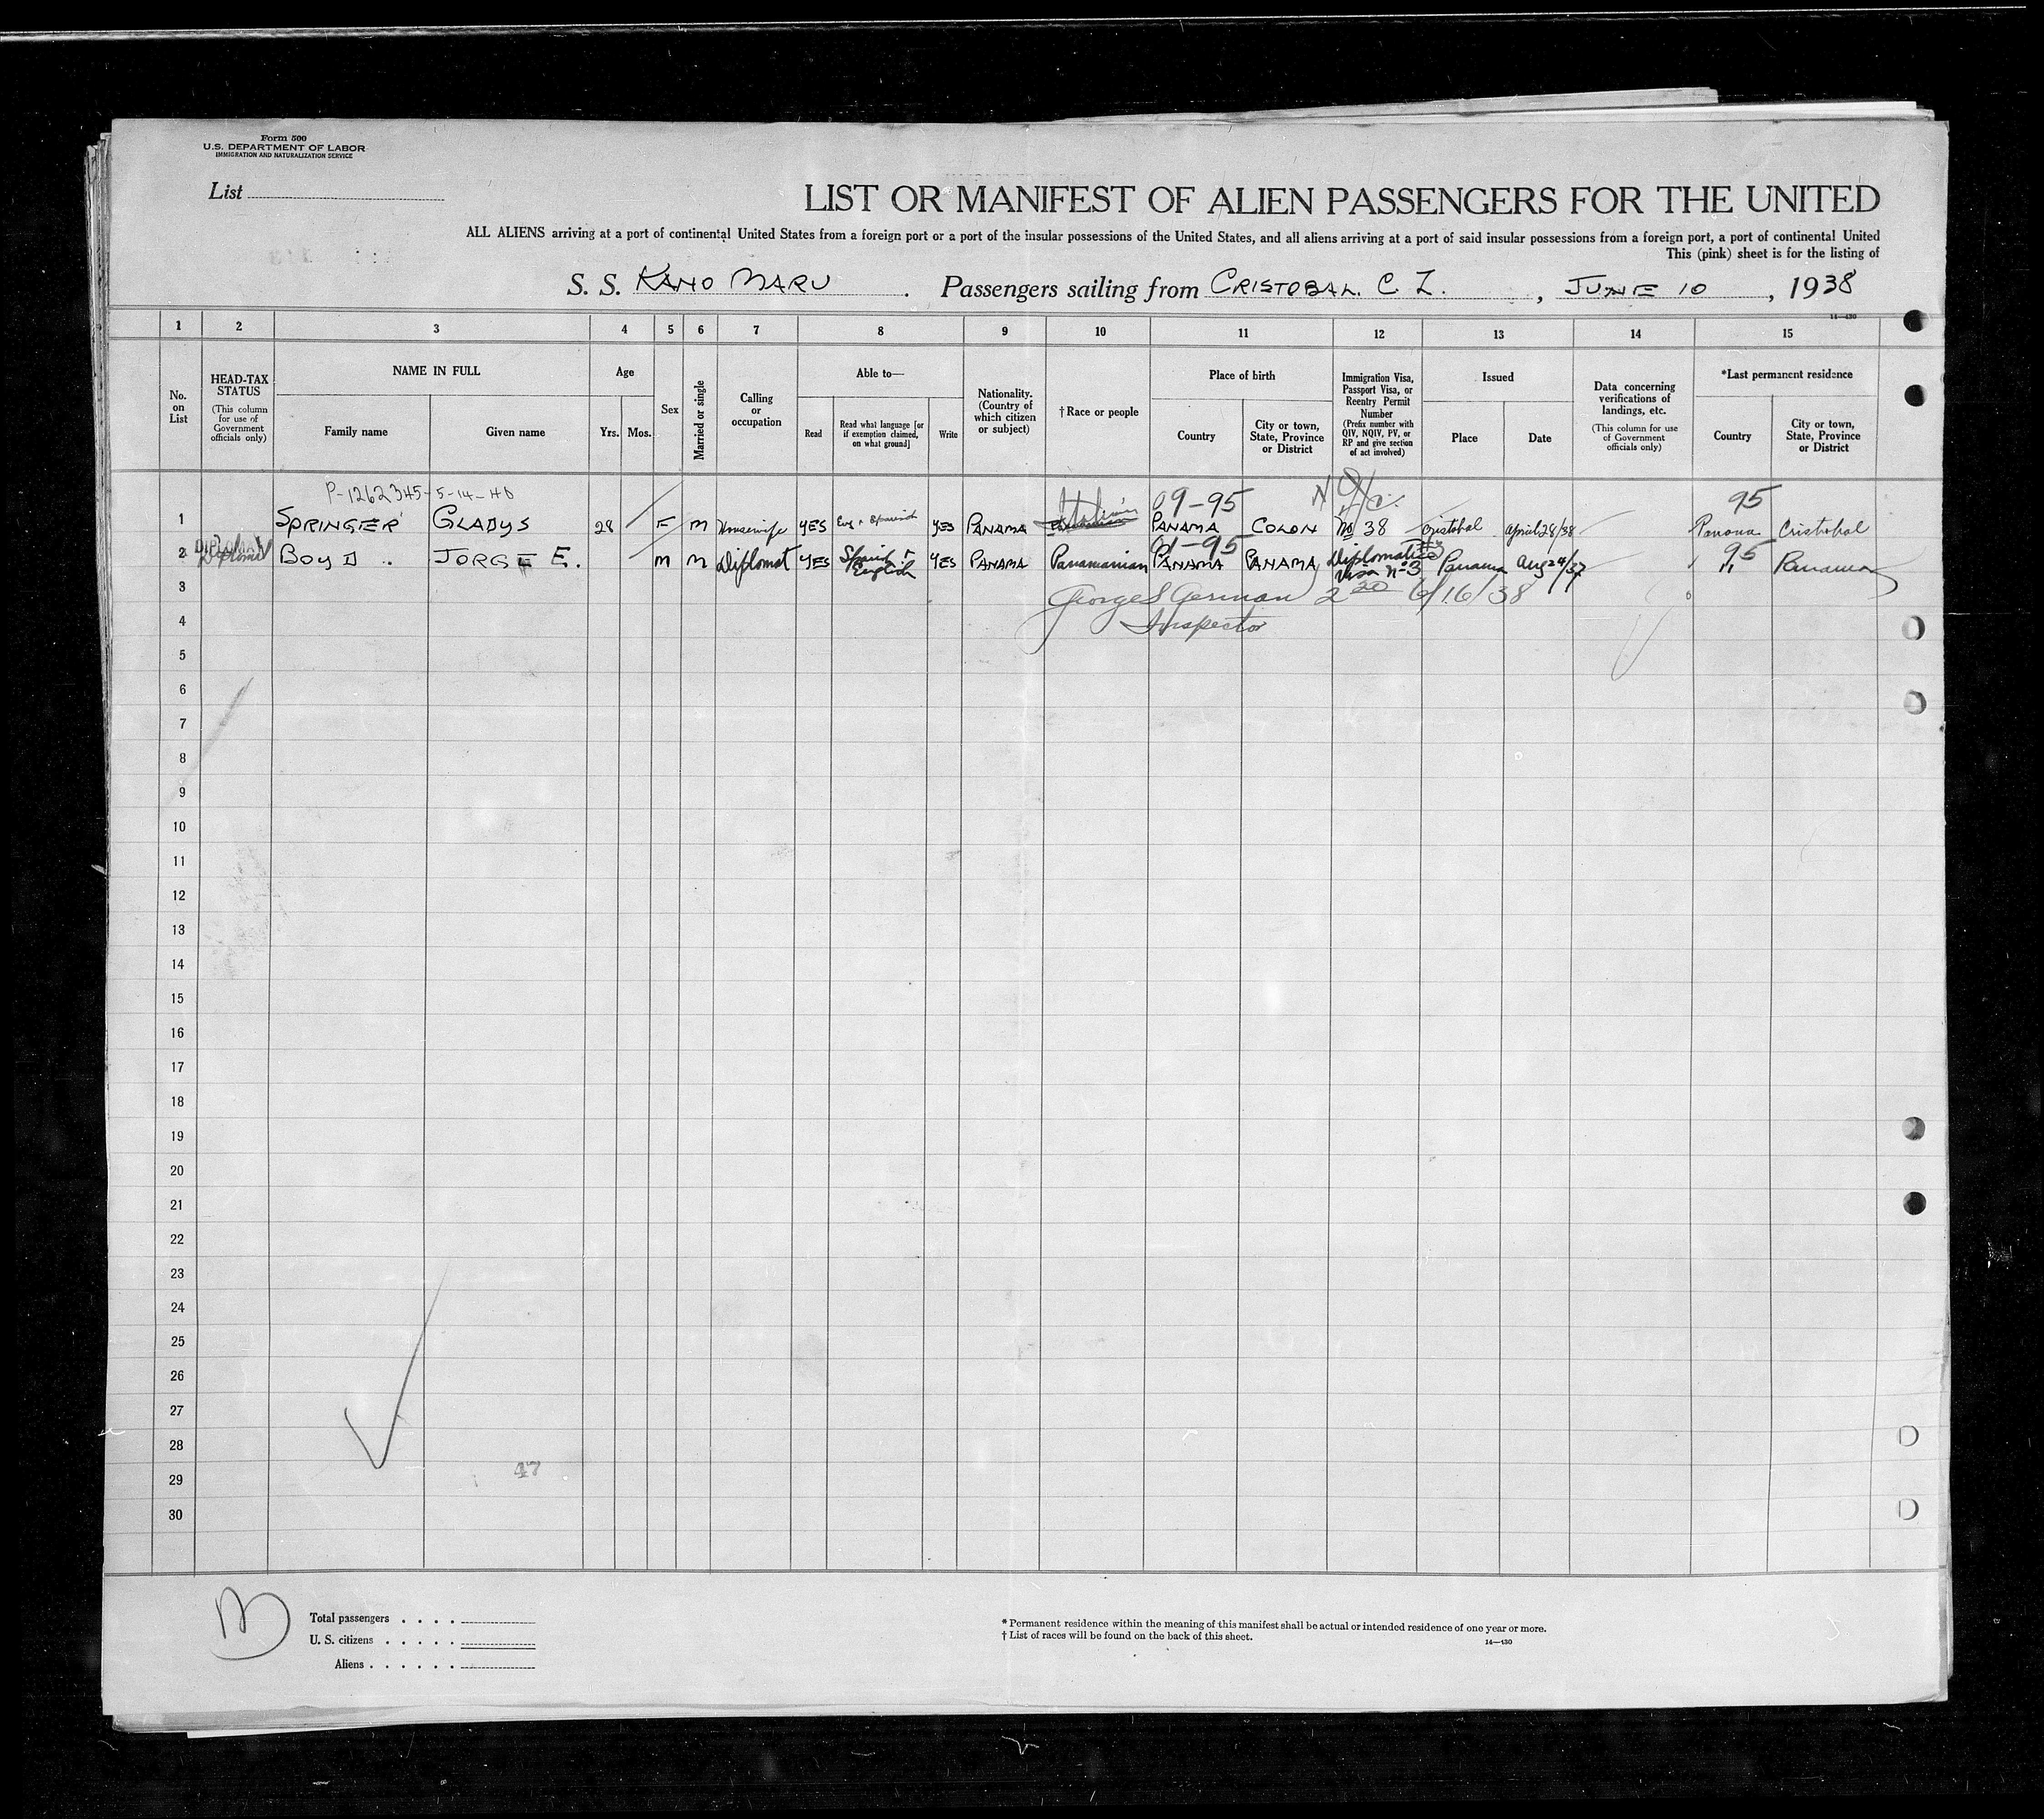 Form 500
U.S. DEPARTMENT OF LABOR
IMMIGRATION AND NATURALIZATION SERVICE
List
LIST OR MANIFEST OF ALIEN PASSENGERS FOR THE UNITED
ALL ALIENS arriving at a port of continental United States from a foreign port or a port of the insular possessions of the United States, and all aliens arriving at a port of said insular possessions from a foreign port, a port of continental United
This (pink) sheet is for the listing of
S. S. KANO MARU. Passengers sailing from CRISTOBAL. C Z., JUNE 10, 1938
14—430
1 2 3 4 5 6 7 8 9 10 11 12 13 14 15
No. on List
HEAD-TAX STATUS (This column for use of Government officials only)
NAME IN FULL
Family name Given name
Age
Yrs. Mos.
Sex
Married or single
Calling or occupation
Able to—
Read
Read what language [or if exemption claimed, on what ground]
Write
Nationality. (Country of which citizen or subject)
†Race or people
Place of birth
Country
City or town, State, Province or District
Immigration Visa, Passport Visa, or Reentry Permit Number (Prefix number with QIV, NQIV, PV, or RP and give section of act involved)
Issued
Place Date
Data concerning verifications of landings, etc. (This column for use of Government officials only)
*Last permanent residence
Country
City or town, State, Province or District
P-1262345-5-14-40 09-95 95
1 SPRINGER GLADYS 28 F M Housewife YES Eng + Spanish YES PANAMA PANAMA COLON No 38 Cristobal April 28/38 Panama Cristobal
01-95 95
2 Diplomat BOYD JORGE E. M M Diplomat YES Spanish + English YES PANAMA Panamanian PANAMA PANAMA Diplomatic Visa No 3 Panama Aug 24/37 " Panama
3 George S German 2 20 6/16/38
4 Inspector
5
6
7
8
9
10
11
12
13
14
15
16
17
18
19
20
21
22
23
24
25
26
27
28
47
29
30
Total passengers . . . .
U. S. citizens . . . . .
Aliens . . . . . .
* Permanent residence within the meaning of this manifest shall be actual or intended residence of one year or more.
† List of races will be found on the back of this sheet.
14—430